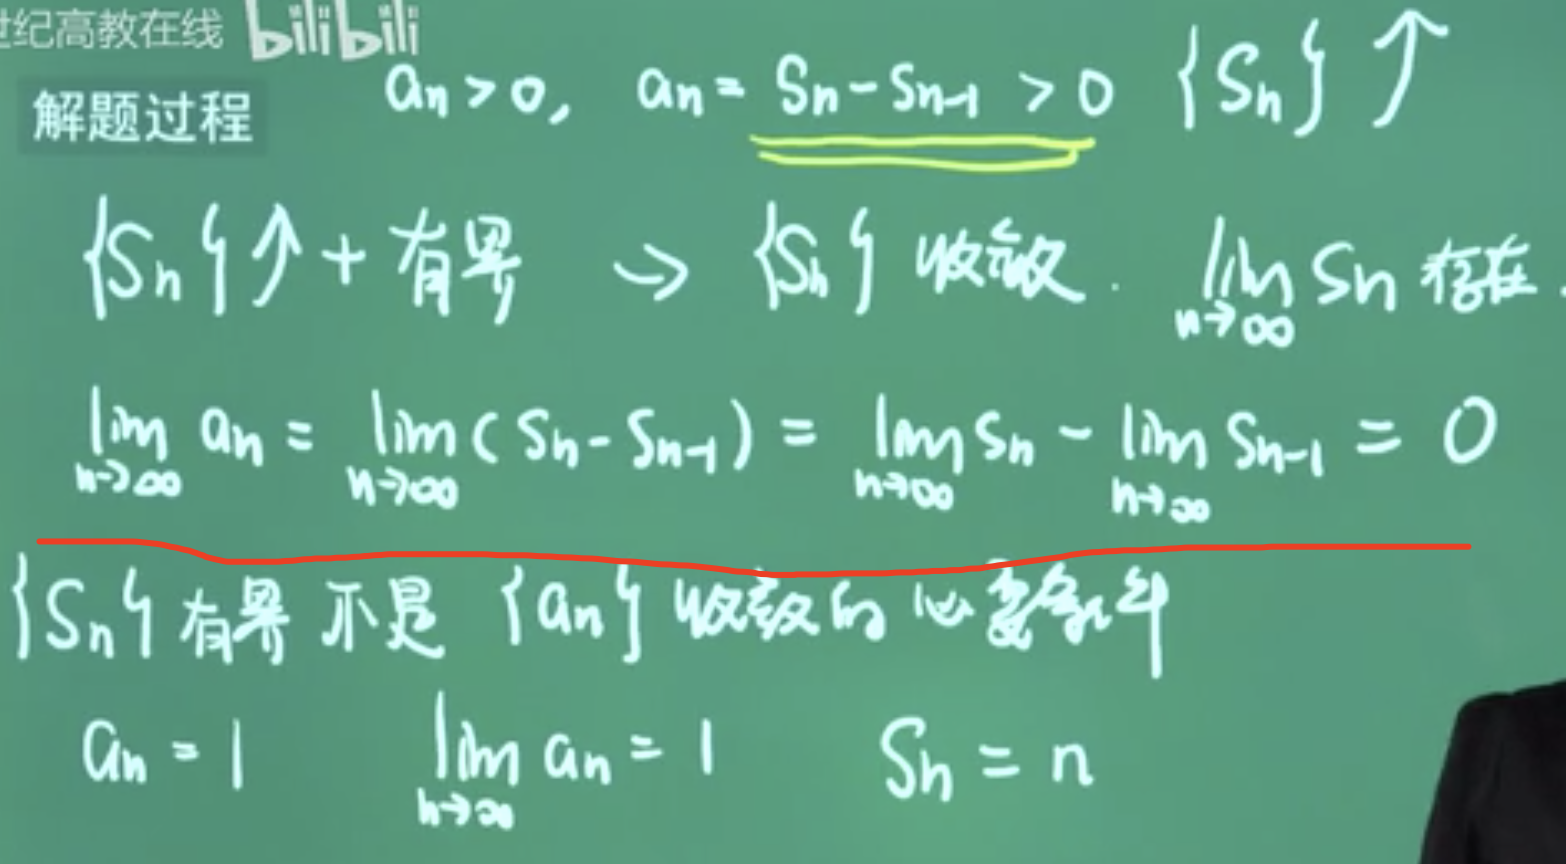 世纪高教在线 bilibili
解题过程
an>0, an=Sn-Sn-1>0 {Sn}↑
{Sn}↑+有界 → {Sn}收敛. lim n→∞ Sn 存在.
lim n→∞ an = lim n→∞ (Sn-Sn-1) = lim n→∞ Sn - lim n→∞ Sn-1 = 0
{Sn}有界 不是 {an} 收敛的 必要条件
an=1 lim n→∞ an=1 Sn=n